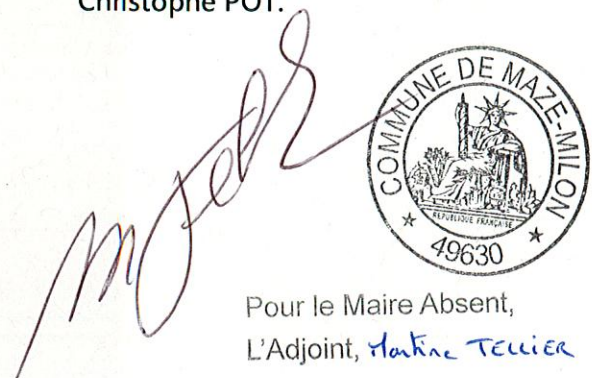 Christophe POT.
COMMUNE DE MAZE-MILON
REPUBLIQUE FRANÇAISE
49630
Pour le Maire Absent,
L'Adjoint, Martine TELLIER